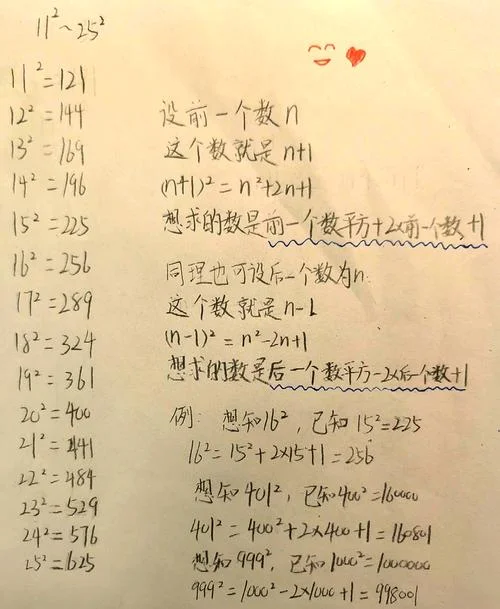 11²~25²
11²=121
12²=144
13²=169
14²=196
15²=225
16²=256
17²=289
18²=324
19²=361
20²=400
21²=441
22²=484
23²=529
24²=576
25²=625
设前一个数n
这个数就是n+1
(n+1)²=n²+2n+1
想求的数是前一个数平方+2x前一个数+1
同理也可设后一个数为n.
这个数就是n-1
(n-1)²=n²-2n+1
想求的数是后一个数平方-2x后一个数+1
例: 想知16², 已知15²=225
16²=15²+2x15+1=256
想知401², 已知400²=160000
401²=400²+2x400+1=160801
想知999², 已知1000²=1000000
999²=1000²-2x1000+1=998001